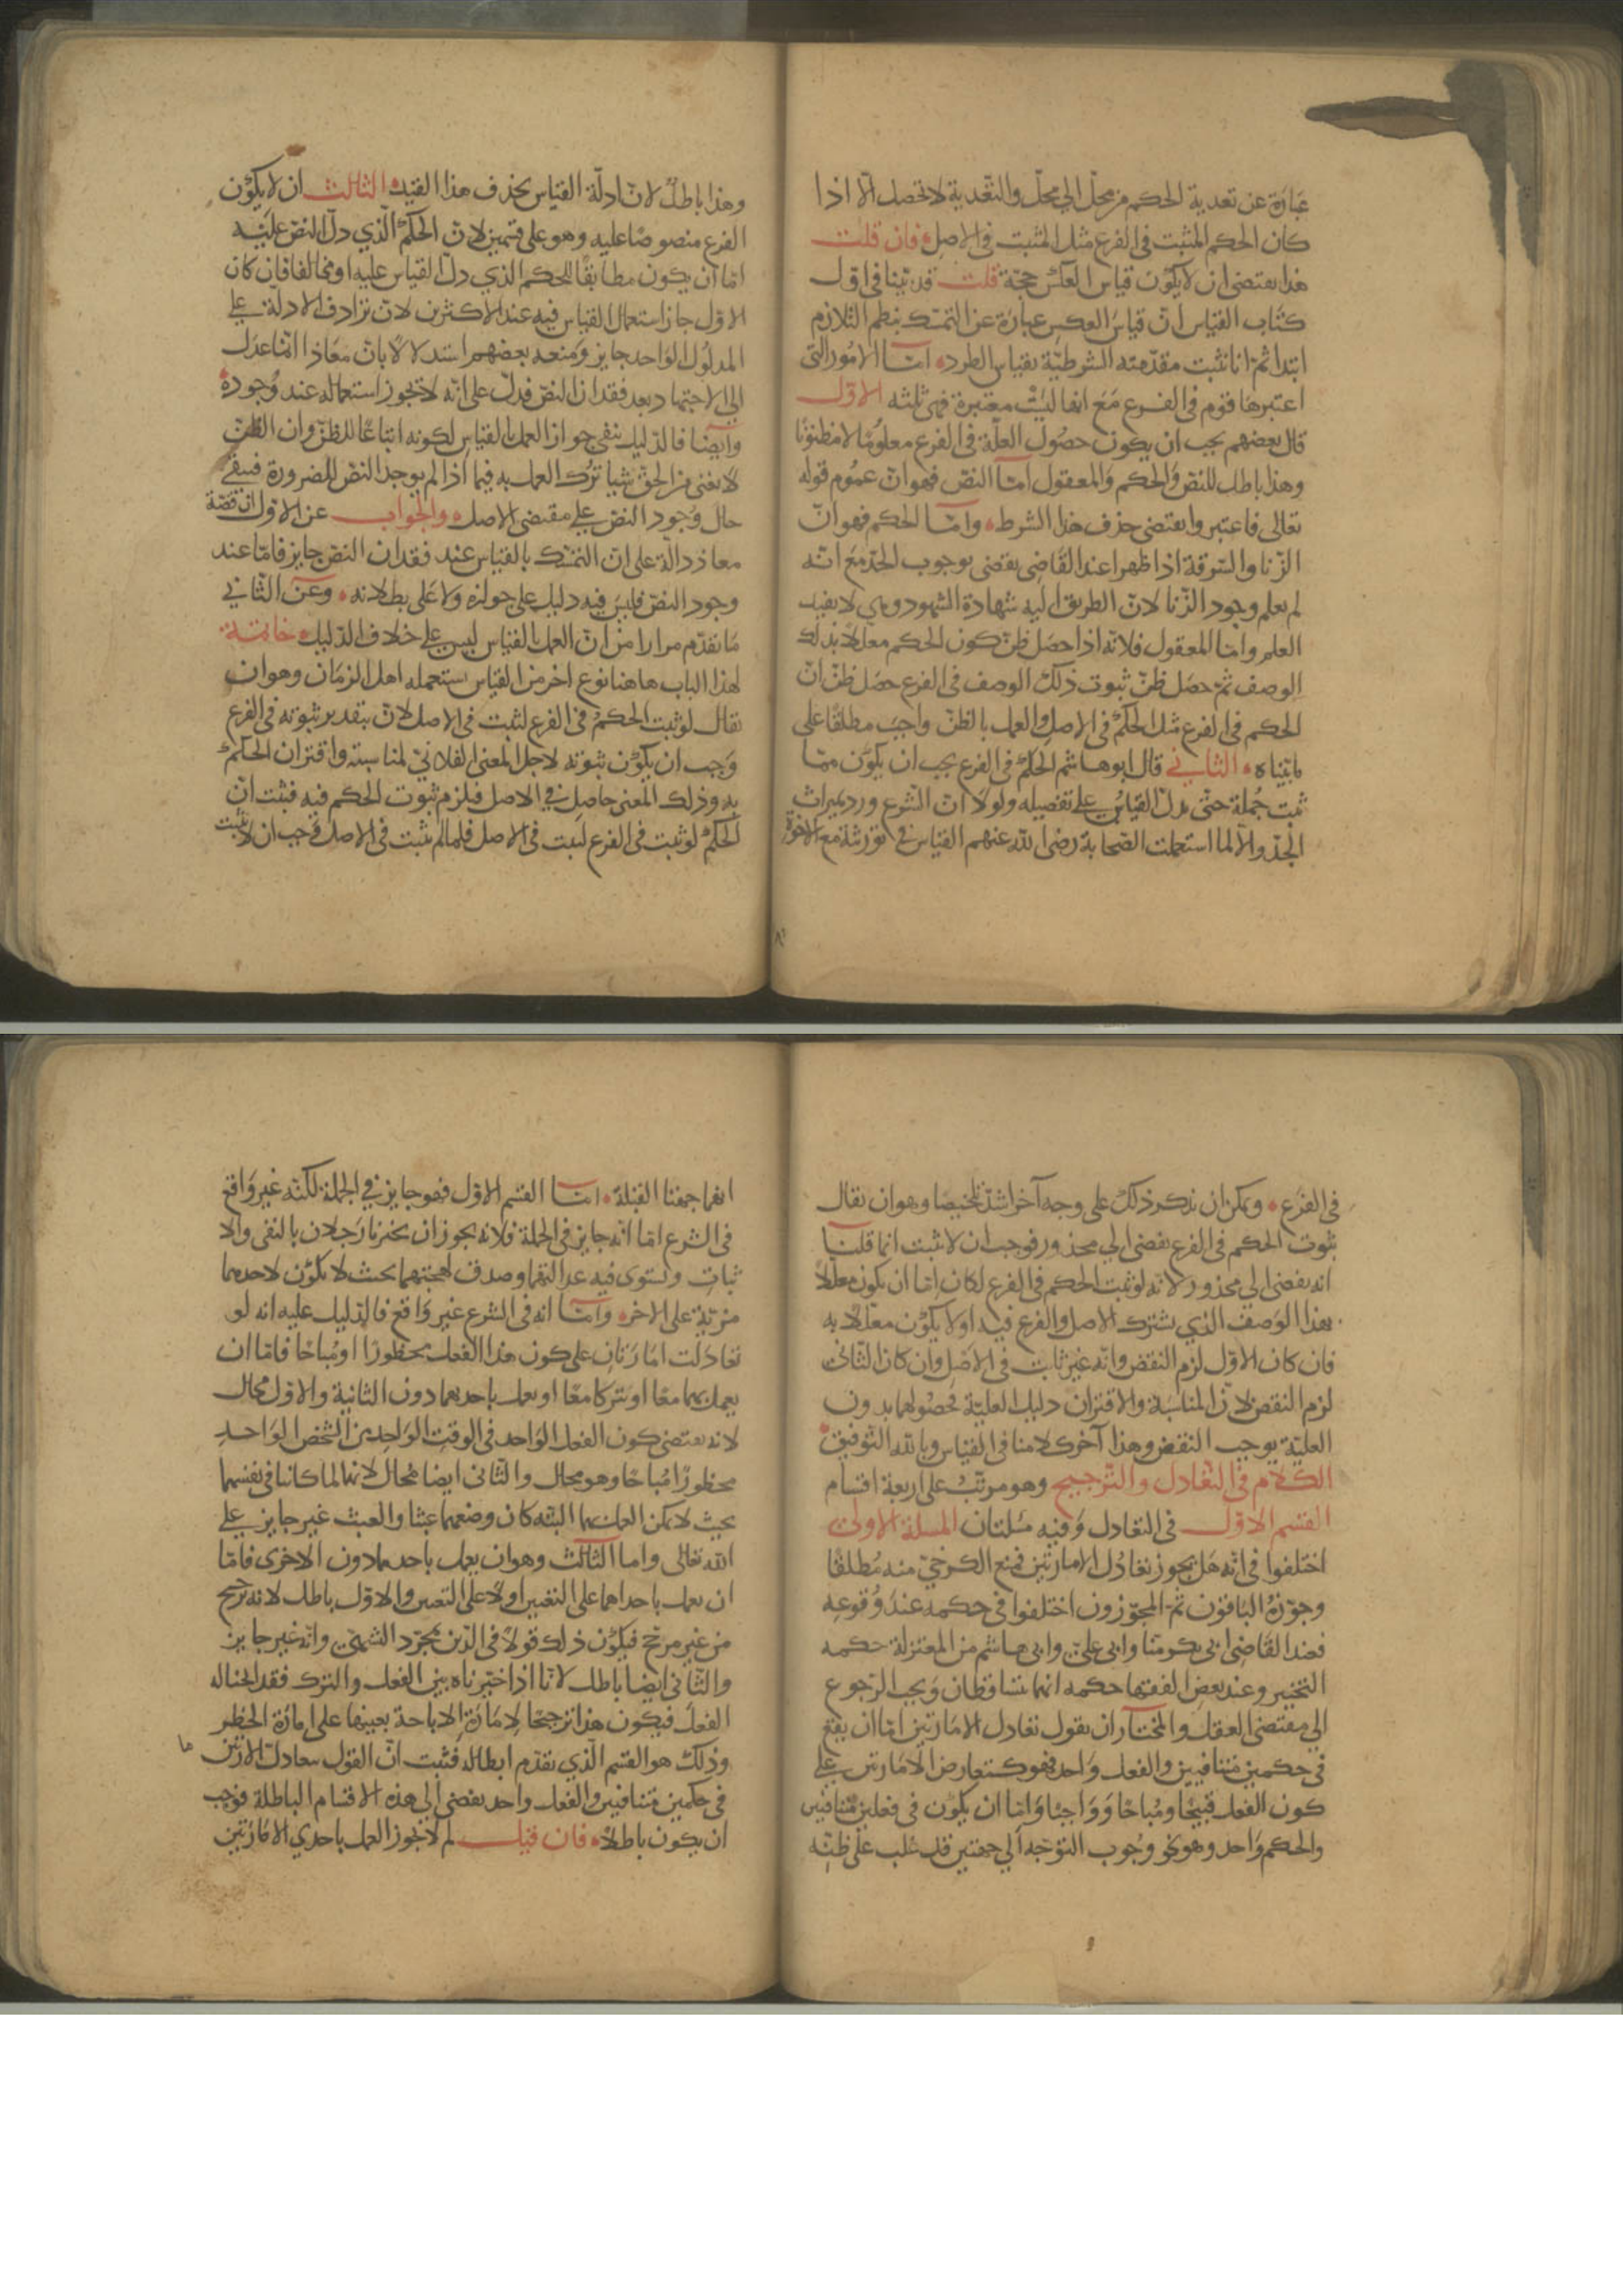 عبارة عن تعدية الحكم من محل الى محل والتعدية لا تحصل الا اذا
كان الحكم المثبت في الفرع مثل المثبت في الاصل فان قلت
هذا يقتضى ان لا يكون قياس العكس حجة قلت قد بينا في اول
كتاب القياس ان قياس العكس عبارة عن التمسك بنظم التلازم
ابتدا ثم انا نثبت مقدمته الشرطية بقياس الطرد اما الامور التى
اعتبرها قوم في الفرع مع انها ليست معتبرة فهى ثلثه الاول
قال بعضهم يجب ان يكون حصول العلة في الفرع معلوما لا مظنونا
وهذا باطل للنص والحكم والمعقول اما النص فهو ان عموم قوله
تعالى فاعتبروا يقتضى حذف هذا الشرط واما الحكم فهو ان
الزنا والسرقة اذا ظهرا عند القاضى يقضى بوجوب الحد مع انه
لم يعلم وجود الزنا لان الطريق اليه شهادة الشهود وهي لا يفيد
العلم واما المعقول فلانه اذا حصل ظن كون الحكم معللا بذلك
الوصف ثم حصل ظن ثبوت ذلك الوصف في الفرع حصل ظن ان
الحكم في الفرع مثل الحكم في الاصل والعمل بالظن واجب مطلقا على
ما بيناه الثاني قال ابو هاشم الحكم في الفرع يجب ان يكون مما
ثبت جملة حتى يدل القياس على تفصيله ولولا ان الشرع ورد بميراث
الجد والا لما استعملت الصحابة رضى الله عنهم القياس في توريثه مع الاخوة
وهذا باطل لان ادلة القياس يحذف هذا القيد الثالث ان لا يكون
الفرع منصوصا عليه وهو على قسمين لان الحكم الذي دل النص عليه
اما ان يكون مطابقا للحكم الذي دل القياس عليه او مخالفا فان كان
الاول جاز استعمال القياس فيه عند الاكثرين لان ترادف الادلة على
المدلول الواحد جايز ومنعه بعضهم استدلالا بان معاذا انما عدل
الى الاجتهاد بعد فقدان النص فدل على انه لا يجوز استعماله عند وجوده
وايضا فالدليل ينفى جواز العمل بالقياس لكونه اتباعا للظن وان الظن
لا يغنى من الحق شيا ترك العمل به فيما اذا لم يوجد النص للضرورة فيبقى
حال وجود النص على مقتضى الاصل والجواب عن الاول ان قصة
معاذ دالة على ان التمسك بالقياس عند فقدان النص جايز فاما عند
وجود النص فليس فيه دليل على جوازه ولا على بطلانه وعن الثاني
ما تقدم مرارا من ان العمل بالقياس ليس على خلاف الدليل خاتمة
لهذا الباب هاهنا نوع اخر من القياس يستعمله اهل الزمان وهو ان
يقال لو ثبت الحكم في الفرع لثبت في الاصل لان بتقدير ثبوته في الفرع
وجب ان يكون ثبوته لاجل المعنى الفلاني لمناسبته واقتران الحكم
به وذلك المعنى حاصل في الاصل فيلزم ثبوت الحكم فيه فثبت ان
الحكم لو ثبت في الفرع لثبت في الاصل فلما لم يثبت في الاصل وجب ان لا يثبت
في الفرع ويمكن ان يذكر ذلك على وجه آخر اشد تلخيصا وهو ان يقال
ثبوت الحكم في الفرع يفضى الى محذور فوجب ان لا يثبت انما قلنا
انه يفضى الى محذور لانه لو ثبت الحكم في الفرع لكان اما ان يكون معللا
بهذا الوصف الذي يشترك الاصل والفرع فيه او لا يكون معللا به
فان كان الاول لزم النقض وانه غير ثابت في الاصل وان كان الثاني
لزم النقض لان المناسبة والاقتران دليل العلية فحصولهما بدون
العلية يوجب النقض وهذا آخر كلامنا في القياس وبالله التوفيق
الكلام في التعادل والترجيح وهو مرتب على اربعة اقسام
القسم الاول في التعادل وفيه مسلتان المسلة الاولى
اختلفوا في انه هل يجوز تعادل الامارتين فمنع الكرخي منه مطلقا
وجوزه الباقون ثم المجوزون اختلفوا في حكمه عند وقوعه
فعند القاضى ابى بكر منا وابى على وابى هاشم من المعتزلة حكمه
التخيير وعند بعض الفقها حكمه انهما يتساقطان ويجب الرجوع
الى مقتضى العقل والمختار ان يقول تعادل الامارتين اما ان يقع
في حكمين متنافيين والفعل واحد فهو كتعارض الامارتين على
كون الفعل قبيحا ومباحا وواجبا واما ان يكون في فعلين متنافيين
والحكم واحد وهو نحو وجوب التوجه الى جهتين قد غلب على ظنه
انهما جهتا القبلة اما القسم الاول فهو جايز في الجملة لكنه غير واقع
في الشرع اما انه جايز في الجملة فلانه يجوز ان يخبرنا رجلان بالنفى والا
ثبات ويستوى فيه عدالتهما وصدق لهجتهما بحيث لا يكون لاحدهما
مزية على الاخر واما انه في الشرع غير واقع فالدليل عليه انه لو
تعادلت امارتان على كون هذا الفعل محظورا او مباحا فاما ان
يعمل بهما معا او يتركا معا او يعمل باحديهما دون الثانية والاول محال
لانه يقتضى كون الفعل الواحد في الوقت الواحد من الشخص الواحد
محظورا مباحا وهو محال والثانى ايضا محال لانهما لما كانا في نفسهما
بحيث لا يمكن العمل بهما البته كان وضعهما عبثا والعبث غير جايز على
الله تعالى واما الثالث وهو ان يعمل باحديهما دون الاخرى فاما
ان يعمل باحداهما على التعيين او لا على التعيين والاول باطل لانه ترجيح
من غير مرجح فيكون ذلك قولا في الدين بمجرد التشهى وانه غير جايز
والثانى ايضا باطل لانا اذا خيرناه بين الفعل والترك فقد ابحنا له
الفعل فيكون هذا ترجيحا لامارة الاباحة بعينها على امارة الحظر
وذلك هو القسم الذي تقدم ابطاله فثبت ان القول بتعادل الامارتين
في حكمين متنافيين والفعل واحد يفضى الى هذه الاقسام الباطلة فوجب
ان يكون باطلا فان قيل لم لا يجوز العمل باحدي الامارتين